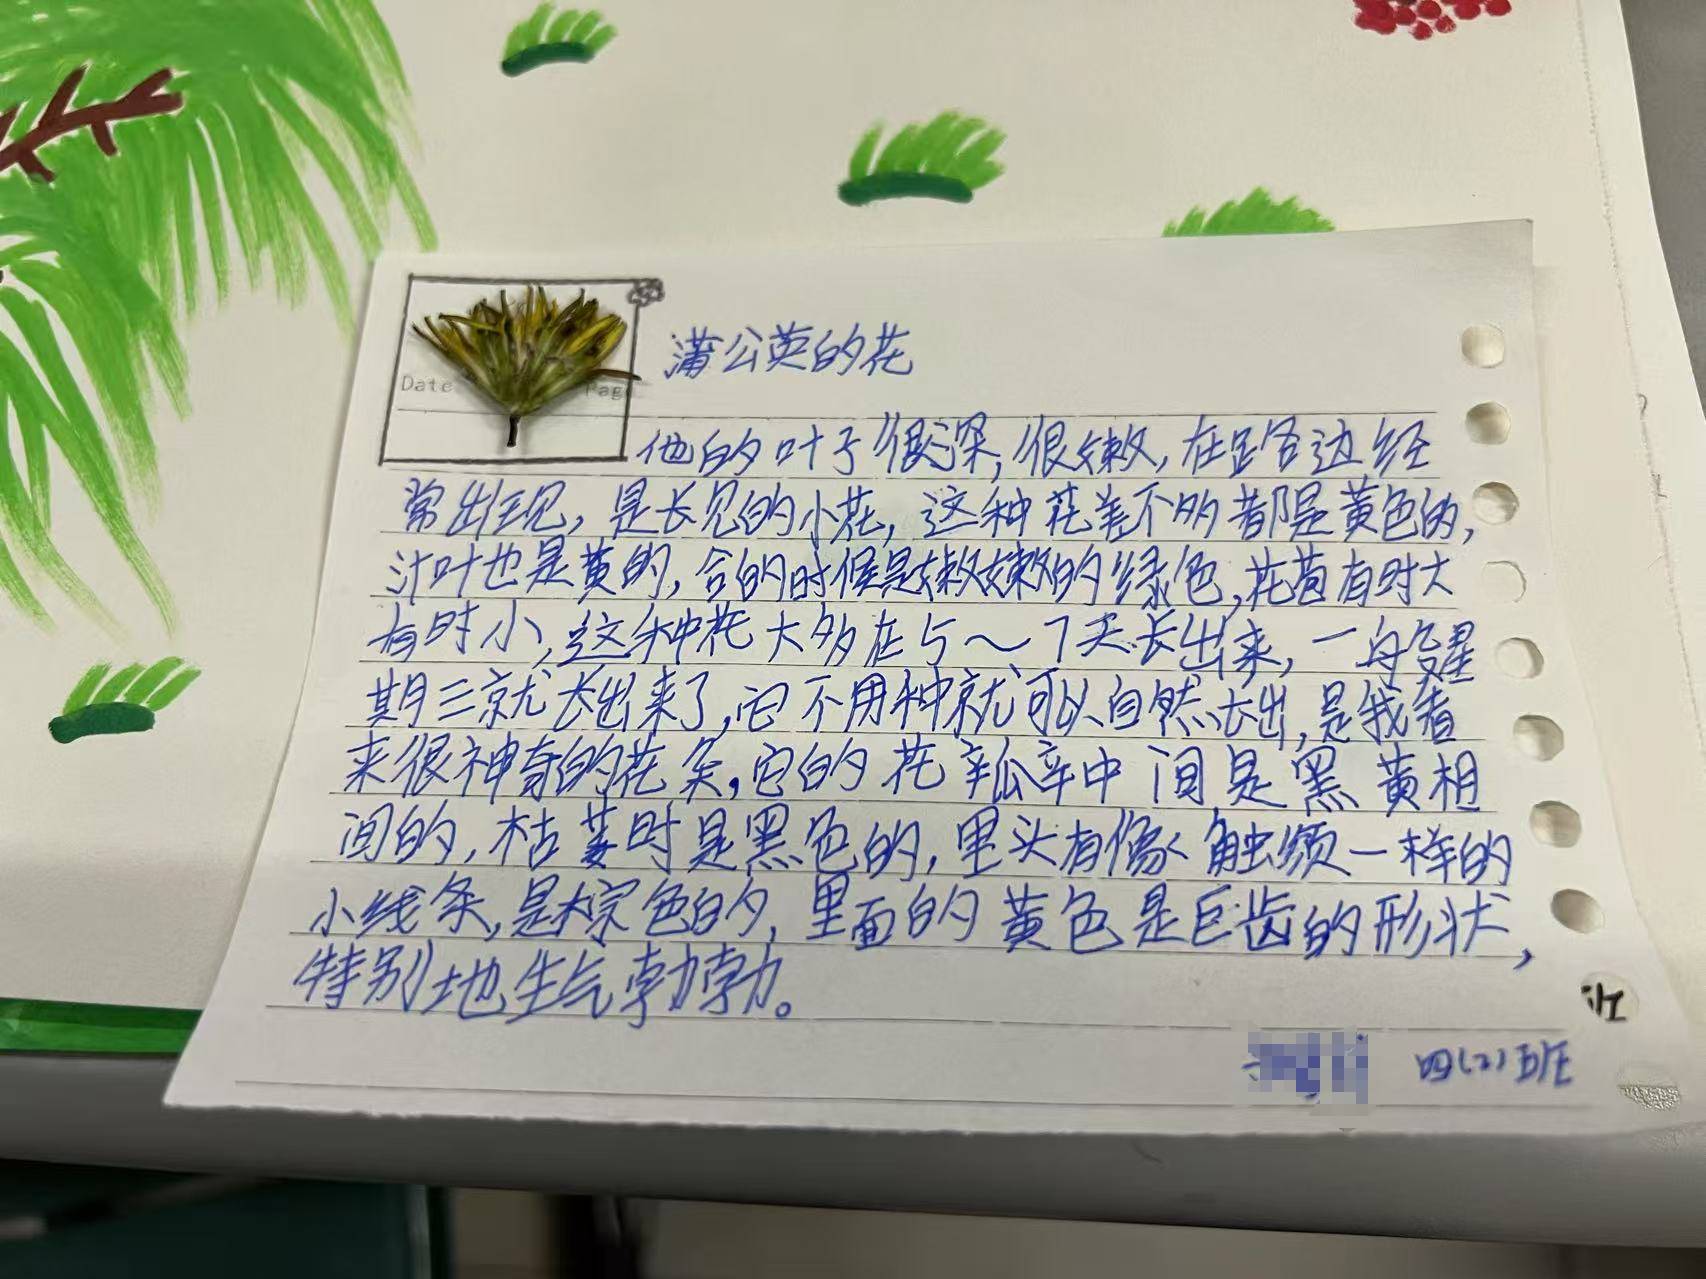 Date
Pag
蒲公英的花
他的叶子很深,很嫩,在路边经
常出现,是长见的小花,这种花差不多都是黄色的,
汁叶也是黄的,合的时候是嫩嫩的绿色,花苞有时大
有时小,这种花大多在5～7天长出来,一般星
期三就长出来了,它不用种就可以自然长出,是我看
来很神奇的花朵。它的花瓣中间是黑黄相
间的,枯萎时是黑色的,里头有像触须一样的
小线条,是棕色的,里面的黄色是巨齿的形状,
特别地生气勃勃。
四(2)班